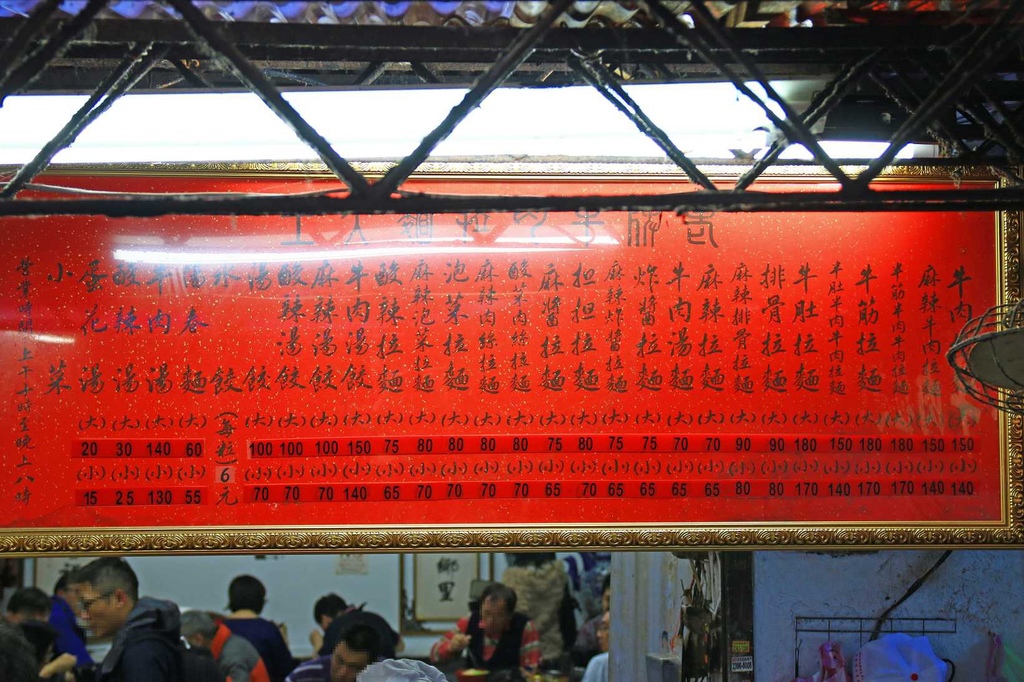 老牌牛肉拉麵大王
牛肉 150 140
麻辣牛肉拉麵 (大) 150 (小) 140
半筋半肉牛肉拉麵 (大) 180 (小) 170
牛筋拉麵 (大) 180 (小) 170
半肚半肉牛肉拉麵 (大) 150 (小) 140
牛肚拉麵 (大) 180 (小) 170
排骨拉麵 (大) 90 (小) 80
麻辣排骨拉麵 (大) 90 (小) 80
麻辣拉麵 (大) 70 (小) 65
牛肉湯拉麵 (大) 70 (小) 65
炸醬拉麵 (大) 75 (小) 65
麻辣炸醬拉麵 (大) 75 (小) 65
担担拉麵 (大) 80 (小) 70
麻醬拉麵 (大) 75 (小) 65
酸菜肉絲拉麵 (大) 80 (小) 70
麻辣肉絲拉麵 (大) 80 (小) 70
泡菜拉麵 (大) 80 (小) 70
麻辣泡菜拉麵 (大) 80 (小) 70
酸辣拉麵 (大) 75 (小) 65
牛肉湯餃 (大) 150 (小) 140
麻辣湯餃 (大) 100 (小) 70
酸辣湯餃 (大) 100 (小) 70
湯餃 (大) 100 (小) 70
水餃 (每粒) 6元
陽春麵 (大) 60 (小) 55
牛肉湯 (大) 140 (小) 130
酸辣湯 (大) 30 (小) 25
蛋花湯 (大) 20 (小) 15
小菜
營業時間:上午十時至晚上八時
鄉里